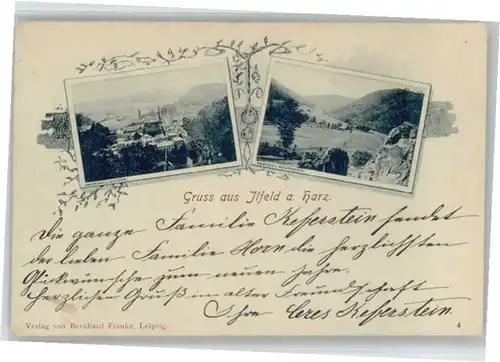 Gruss aus Ilfeld a. Harz.
Die ganze Familie Keferstein sendet
der lieben Familie Horn die herzlichsten
Glückwünsche zum neuen Jahre.
Herzlichen Gruß in alter Freundschaft
Ihre Ceres Keferstein.
Verlag von Bernhard Franke, Leipzig.
4